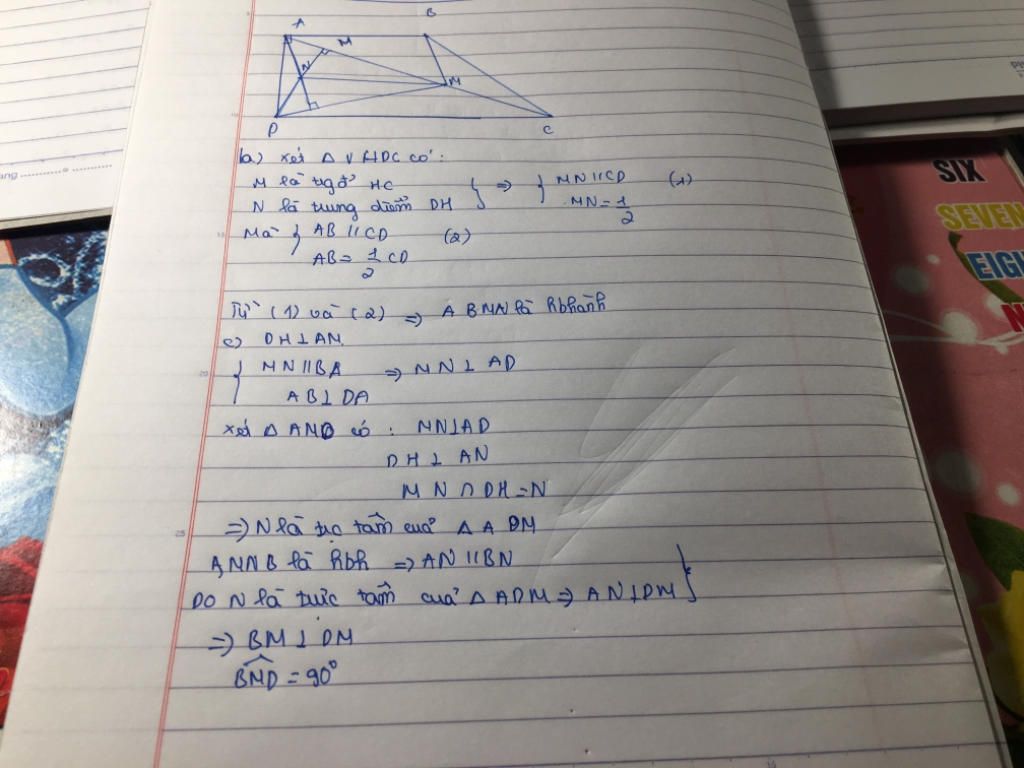 A
B
M
N
M
D
C
b) xét Δ HDC có:
M là tgđ HC
N là trung điểm DH
} => { MN // CD (1)
MN = 1/2
Mà { AB // CD (2)
AB = 1/2 CD
Từ (1) và (2) => ABMN là hbhành
c) DH ⊥ AM
{ MN // BA => MN ⊥ AD
AB ⊥ DA
xét Δ AMD có : MN ⊥ AD
DH ⊥ AN
MN ∩ DH = N
=> N là trực tâm của Δ ADM
AMNB là hbh => AN // BN
DO N là trực tâm của Δ ADM => AN ⊥ DM }
=> BM ⊥ DM
BMD = 90°
SIX
SEVEN
EIGH
N
ang